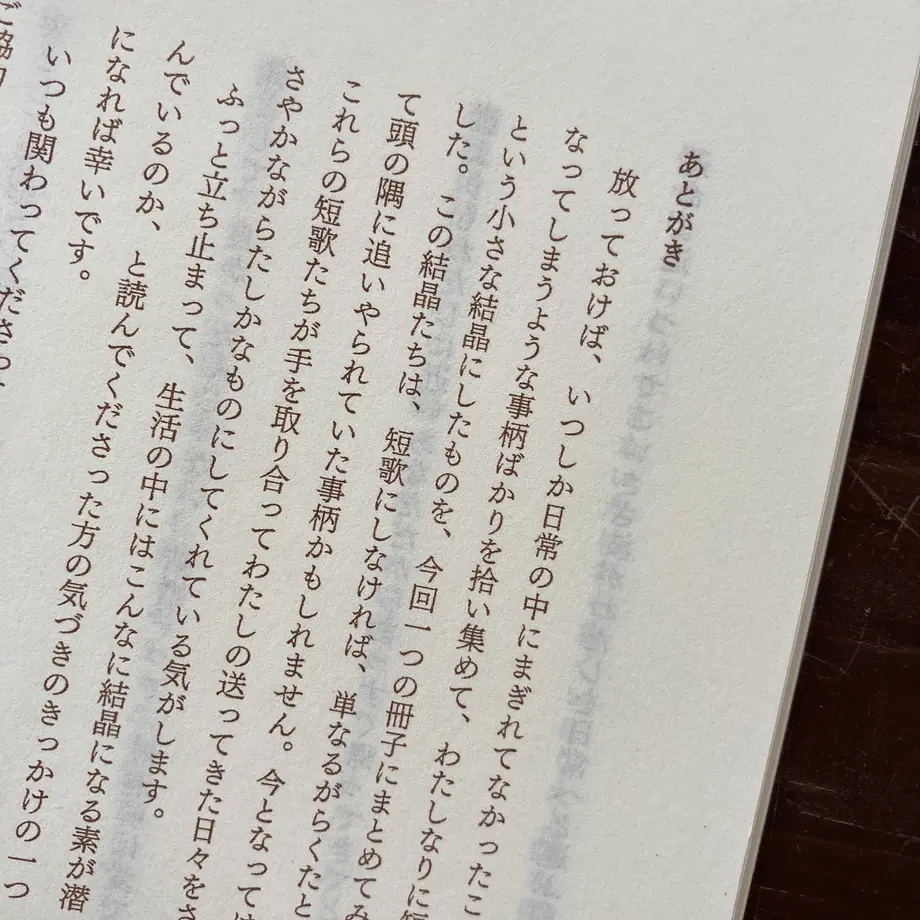 あとがき
放っておけば、いつしか日常の中にまぎれてなかったこ
なってしまうような事柄ばかりを拾い集めて、わたしなりに短
という小さな結晶にしたものを、今回一つの冊子にまとめてみ
した。この結晶たちは、短歌にしなければ、単なるがらくたと
て頭の隅に追いやられていた事柄かもしれません。今となっては
これらの短歌たちが手を取り合ってわたしの送ってきた日々をさ
さやかながらたしかなものにしてくれている気がします。
ふっと立ち止まって、生活の中にはこんなに結晶になる素が潜
んでいるのか、と読んでくださった方の気づきのきっかけの一つ
になれば幸いです。
いつも関わってくださっ
ご協力